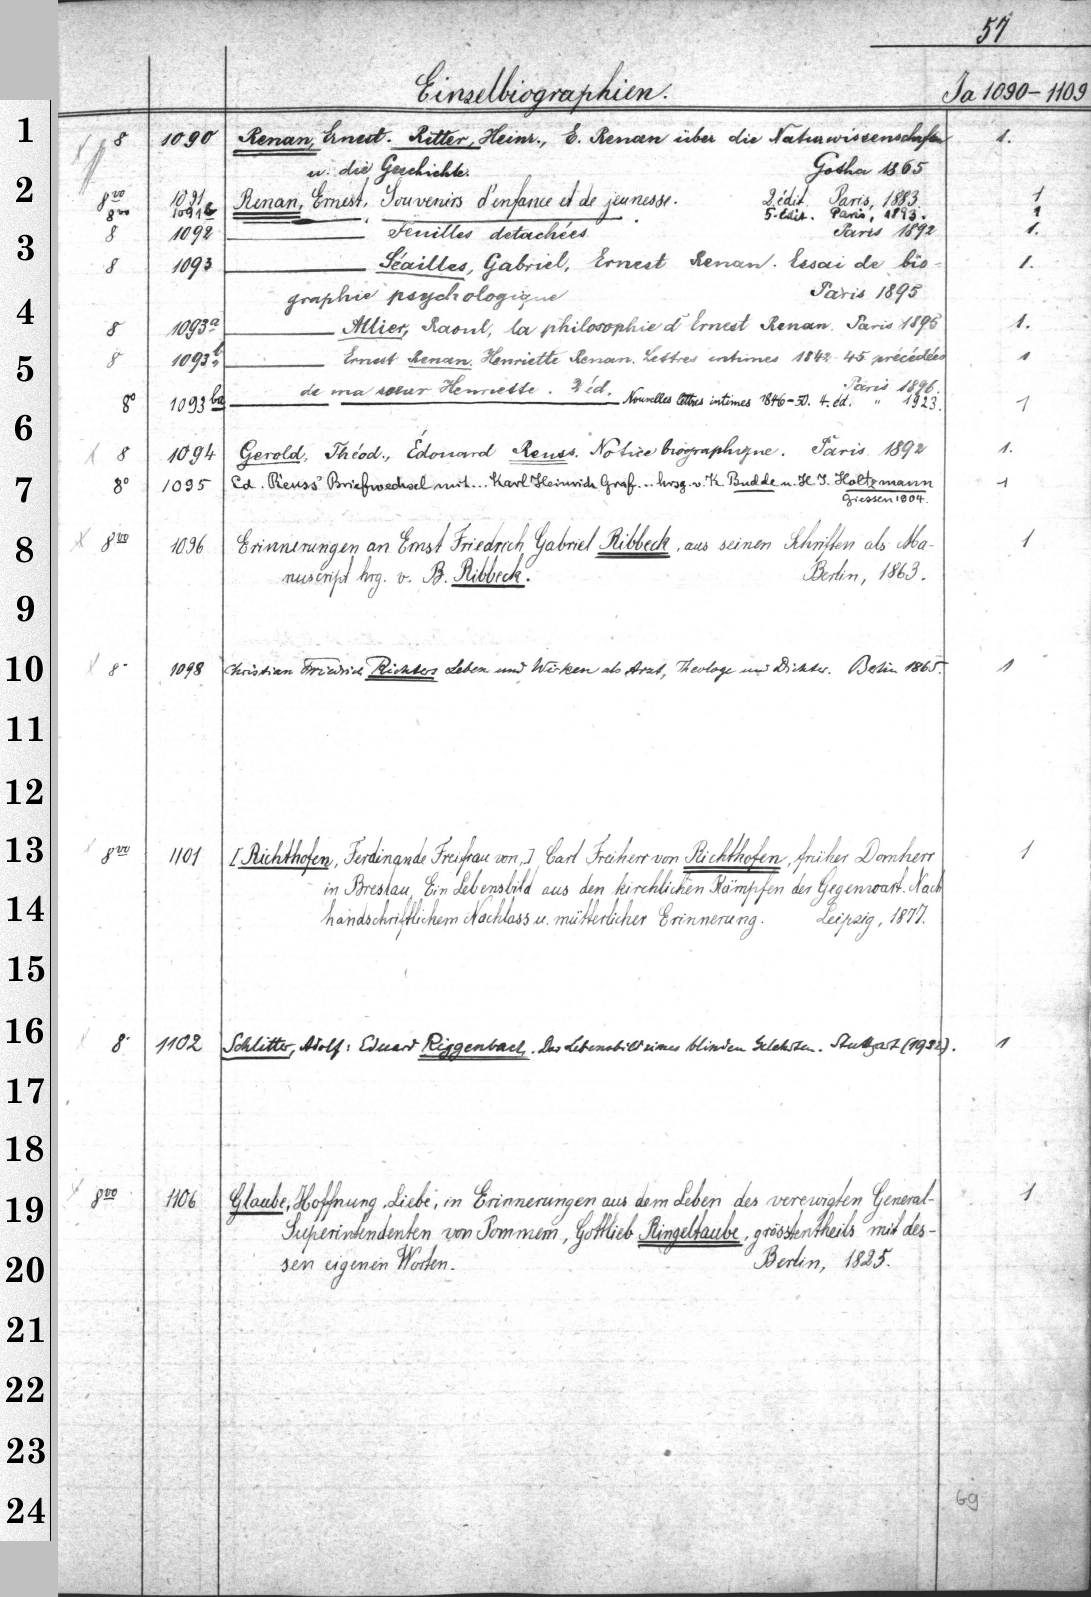 57
Einzelbiographien.
Ja 1090–1109
1
8 1090 Renan, Ernest. Ritter, Heinr., E. Renan über die Naturwissenschaften 1.
u. die Geschichte. Gotha 1865
2
8vo 1091 Renan, Ernest. Souvenirs d'enfance et de jeunesse. 2.édit. Paris, 1883. 1
8vo 1091b 5.édit. Paris, 1893. 1
3
8 1092 Feuilles detachées Paris 1892 1.
8 1093 Séailles, Gabriel, Ernest Renan. Essai de bio-
1.
graphie psychologique Paris 1895
4
8 1093a Allier, Raoul, la philosophie d'Ernest Renan. Paris 1895 1.
5
8 1093b Ernest Renan. Henriette Renan. Lettres intimes 1842-45 précédées 1
de ma sœur Henriette. 2 éd. Paris 1896.
8° 1093ba Nouvelles lettres intimes 1846–50. 4. éd. " 1923. 1
6
8 1094 Gerold, Théod., Édouard Reuss. Notice biographique. Paris 1892 1.
7
8° 1095 Ed. Reuss' Briefwechsel mit... Karl Heinrich Graf... hrsg. v. K. Budde u. H. J. Holtzmann 1
Giessen 1904.
8
8vo 1096 Erinnerungen an Ernst Friedrich Gabriel Ribbeck, aus seinen Schriften als Ma- 1
nuscript hrg. v. B. Ribbeck. Berlin, 1863.
9
10
8° 1098 Christian Friedrich Richters Leben und Wirken als Arzt, Theologe und Dichter. Berlin 1865. 1
11
12
13
8vo 1101 [Richthofen, Ferdinande Freifrau von,] Carl Freiherr von Richthofen, früher Domherr 1
in Breslau, Ein Lebensbild aus den kirchlichen Kämpfen der Gegenwart. Nach
14
handschriftlichem Nachlass u. mütterlicher Erinnerung. Leipzig, 1877.
15
16
8° 1102 Schlitter, Adolf: Eduard Riggenbach. Das Lebensbild eines blinden Gelehrten. Stuttgart (1932). 1
17
18
19
8vo 1106 Glaube, Hoffnung, Liebe, in Erinnerungen aus dem Leben des verewigten General- 1
Superintendenten von Pommern, Gottlieb Ringeltaube, grösstentheils mit des-
20
sen eigenen Worten. Berlin, 1825.
21
22
23
24
69